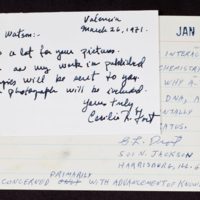 Valencia
March 26, 1971.
Watson:-
a lot for your pictures.
as my work is published
copies will be sent to you.
photograph will be included.
Yours truly,
Cecilia
JAN
INTERAC
CHEMISTRY
WHY A
DNA,
ENTALLY
ATUS.
501 N. JACKSON
HARRISBURG, ILL. 6
PRIMARILY
CONCERNED WITH ADVANCEMENT OF KNOW